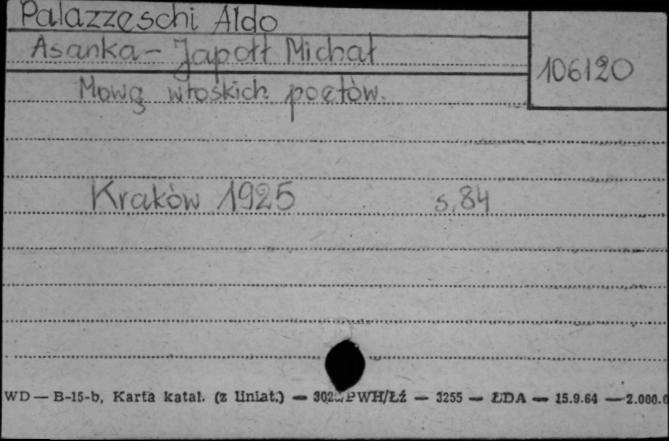 Palazzeschi Aldo
Asanka-Japołł Michał
106120
Mową włoskich poetów.
Kraków 1925 s. 84
WD — B-15-b, Karta katal. (z liniat.) — PWH/Łż — 3255 — ŁDA — 15.9.64 — 2.000.0